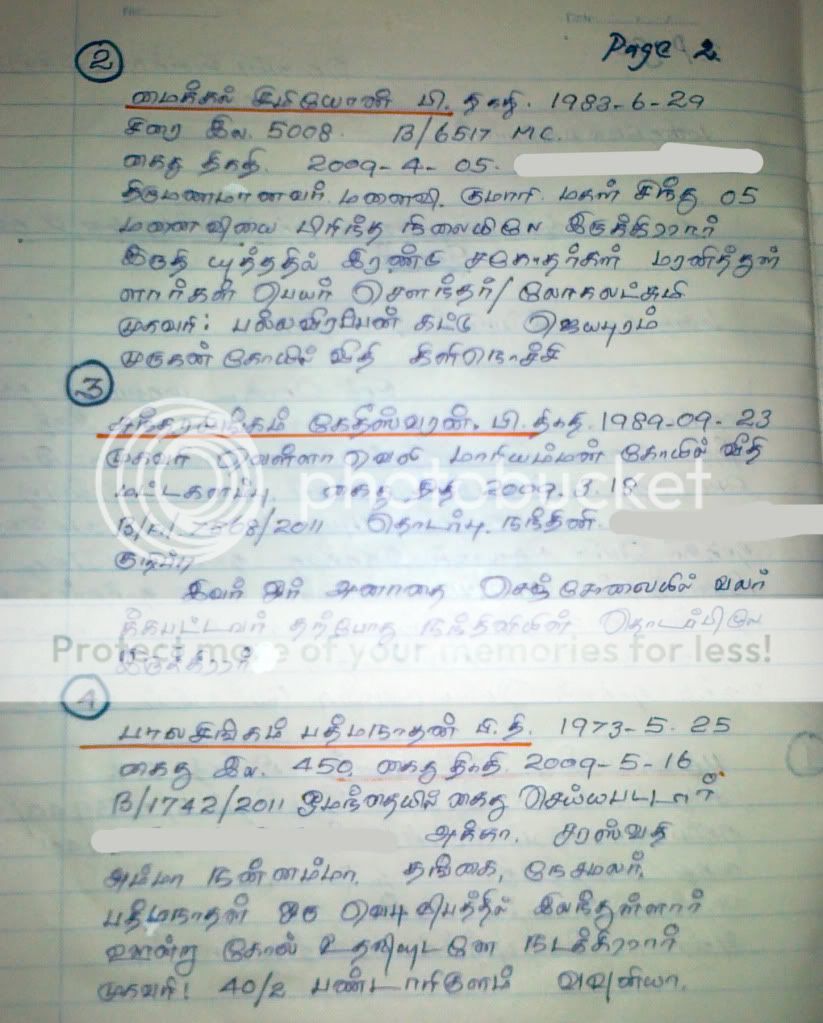 Page 2
2
மைக்கல் சிமியோன் பி. திகதி. 1983-6-29
சிறை இல. 5008. B/6517 MC.
கைது திகதி. 2009-4-05.
திருமணமானவர் மனைவி. குமாரி. மகள் சிந்து 05
மனைவியை பிரிந்த நிலையிலே இருக்கிறார்
இறுதி யுத்ததில் இரண்டு சகோதர்கள் மரணித்துள்
ளார்கள் பெயர் சௌந்தர்/லோகலட்சுமி
முகவரி: பல்லவிராயன் கட்டு ஜெயபுரம்
முருகன் கோயில் வீதி கிளிநொச்சி
3
கேதீஸ்வரன். பி. திகதி. 1989-09-23
முகவரி வெள்ளாவெளி மாரியம்மன் கோயில் வீதி
மட்டகளப்பு. கைது திகதி 2009.3.18
7368/2011 தொடர்பு. நந்தினி.
குறிப்பு
இவர் ஓர் அனாதை செஞ்சோலையில் வலர்
க்கபட்டவர் தற்போது நந்தினியின் தொடர்பிலே
இருக்கிறார்
photobucket
Protect more of your memories for less!
4
பாலசிங்கம் பத்மநாதன் பி.தி. 1973-5.25
கைது இல. 450. கைது திகதி. 2009-5-16
B/1742/2011 ஓமந்தையில் கைது செய்யபட்டார்
அக்கா. சரஸ்வதி
அம்மா நன்னம்மா. தங்கை, நேசமலர்.
பத்மநாதன் ஒரு இலந்துள்ளார்
ஊன்று கோல் உதவியுடனே நடக்கிறார்
முகவரி: 40/2 பண்டாரிகுளம் வவுனியா.